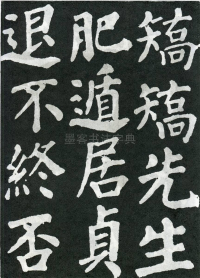 矯矯先生
肥遁居貞
退不終否
墨客书法字典